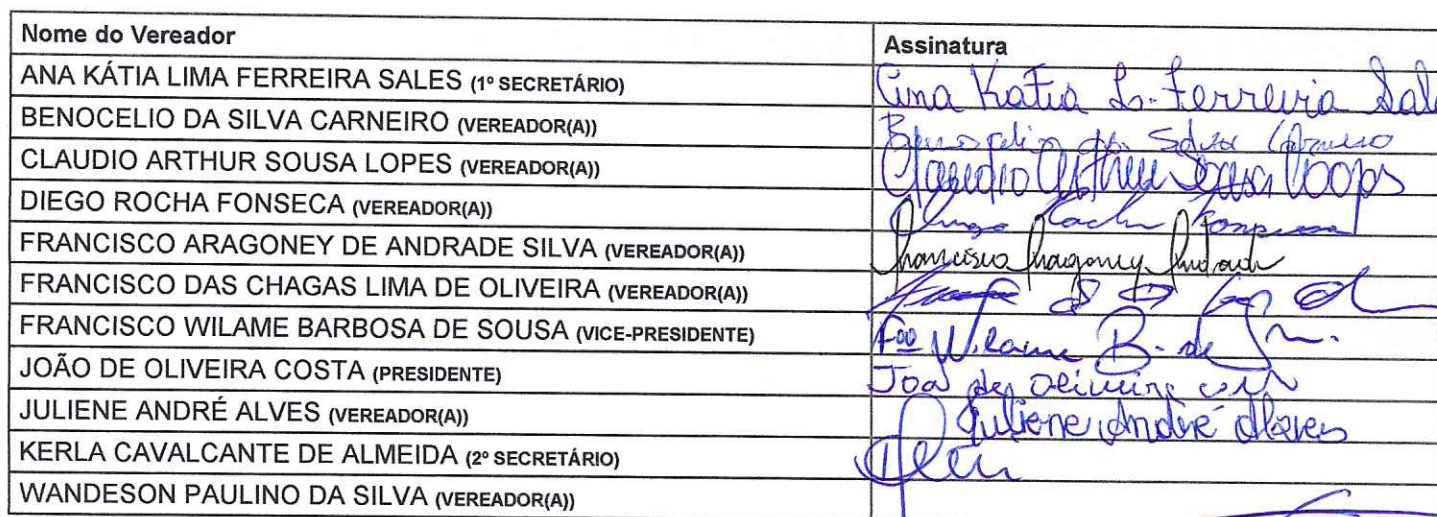 Nome do Vereador Assinatura
ANA KÁTIA LIMA FERREIRA SALES (1º SECRETÁRIO) Ana Katia L. Ferreira Sale
BENOCELIO DA SILVA CARNEIRO (VEREADOR(A)) da Silva
CLAUDIO ARTHUR SOUSA LOPES (VEREADOR(A)) Claudio Arthur Sousa
DIEGO ROCHA FONSECA (VEREADOR(A))
FRANCISCO ARAGONEY DE ANDRADE SILVA (VEREADOR(A)) Francisco Aragoney Andrade
FRANCISCO DAS CHAGAS LIMA DE OLIVEIRA (VEREADOR(A))
FRANCISCO WILAME BARBOSA DE SOUSA (VICE-PRESIDENTE) Fco Wilame B. de
JOÃO DE OLIVEIRA COSTA (PRESIDENTE) Joa de oliveira
JULIENE ANDRÉ ALVES (VEREADOR(A)) Juliene André Alves
KERLA CAVALCANTE DE ALMEIDA (2º SECRETÁRIO)
WANDESON PAULINO DA SILVA (VEREADOR(A))